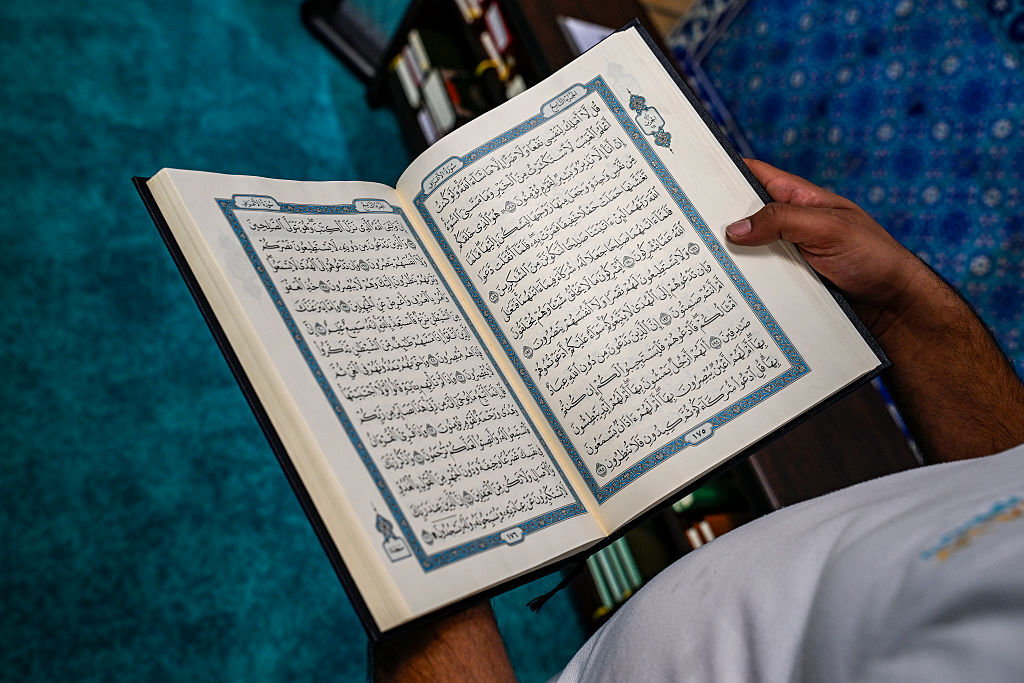 الجزء التاسع
سورة الأعراف
قُل لَّآ أَمۡلِكُ لِنَفۡسِي نَفۡعٗا وَلَا ضَرًّا إِلَّا مَا شَآءَ ٱللَّهُۚ وَلَوۡ كُنتُ
أَعۡلَمُ ٱلۡغَيۡبَ لَٱسۡتَكۡثَرۡتُ مِنَ ٱلۡخَيۡرِ وَمَا مَسَّنِيَ ٱلسُّوٓءُۚ
إِنۡ أَنَا۠ إِلَّا نَذِيرٞ وَبَشِيرٞ لِّقَوۡمٖ يُؤۡمِنُونَ ١٨٨ ۞ هُوَ ٱلَّذِي خَلَقَكُم
مِّن نَّفۡسٖ وَٰحِدَةٖ وَجَعَلَ مِنۡهَا زَوۡجَهَا لِيَسۡكُنَ إِلَيۡهَاۖ فَلَمَّا
تَغَشَّىٰهَا حَمَلَتۡ حَمۡلًا خَفِيفٗا فَمَرَّتۡ بِهِۦۖ فَلَمَّآ أَثۡقَلَت دَّعَوَا
ٱللَّهَ رَبَّهُمَا لَئِنۡ ءَاتَيۡتَنَا صَٰلِحٗا لَّنَكُونَنَّ مِنَ ٱلشَّٰكِرِينَ ١٨٩
فَلَمَّآ ءَاتَىٰهُمَا صَٰلِحٗا جَعَلَا لَهُۥ شُرَكَآءَ فِيمَآ ءَاتَىٰهُمَاۚ فَتَعَٰلَى
ٱللَّهُ عَمَّا يُشۡرِكُونَ ١٩٠ أَيُشۡرِكُونَ مَا لَا يَخۡلُقُ شَيۡـٔٗا وَهُمۡ يُخۡلَقُونَ
١٩١ وَلَا يَسۡتَطِيعُونَ لَهُمۡ نَصۡرٗا وَلَآ أَنفُسَهُمۡ يَنصُرُونَ ١٩٢
وَإِن تَدۡعُوهُمۡ إِلَى ٱلۡهُدَىٰ لَا يَتَّبِعُوكُمۡۚ سَوَآءٌ عَلَيۡكُمۡ أَدَعَوۡتُمُوهُمۡ
أَمۡ أَنتُمۡ صَٰمِتُونَ ١٩٣ إِنَّ ٱلَّذِينَ تَدۡعُونَ مِن دُونِ ٱللَّهِ عِبَادٌ
أَمۡثَالُكُمۡۖ فَٱدۡعُوهُمۡ فَلۡيَسۡتَجِيبُواْ لَكُمۡ إِن كُنتُمۡ
صَٰدِقِينَ ١٩٤ أَلَهُمۡ أَرۡجُلٞ يَمۡشُونَ بِهَآۖ أَمۡ لَهُمۡ أَيۡدٖ يَبۡطِشُونَ
بِهَآۖ أَمۡ لَهُمۡ أَعۡيُنٞ يُبۡصِرُونَ بِهَآۖ أَمۡ لَهُمۡ ءَاذَانٞ يَسۡمَعُونَ
بِهَاۗ قُلِ ٱدۡعُواْ شُرَكَآءَكُمۡ ثُمَّ كِيدُونِ فَلَا تُنظِرُونِ ١٩٥
١٧٥
الجزء التاسع
سورة الأعراف
إِنَّ وَلِـِّۧيَ ٱللَّهُ ٱلَّذِي نَزَّلَ ٱلۡكِتَٰبَۖ وَهُوَ يَتَوَلَّى ٱلصَّٰلِحِينَ
١٩٦ وَٱلَّذِينَ تَدۡعُونَ مِن دُونِهِۦ لَا يَسۡتَطِيعُونَ نَصۡرَكُمۡ
وَلَآ أَنفُسَهُمۡ يَنصُرُونَ ١٩٧ وَإِن تَدۡعُوهُمۡ إِلَى ٱلۡهُدَىٰ لَا يَسۡمَعُواْۖ
وَتَرَىٰهُمۡ يَنظُرُونَ إِلَيۡكَ وَهُمۡ لَا يُبۡصِرُونَ ١٩٨ خُذِ ٱلۡعَفۡوَ
وَأۡمُرۡ بِٱلۡعُرۡفِ وَأَعۡرِضۡ عَنِ ٱلۡجَٰهِلِينَ ١٩٩ وَإِمَّا يَنزَغَنَّكَ
مِنَ ٱلشَّيۡطَٰنِ نَزۡغٞ فَٱسۡتَعِذۡ بِٱللَّهِۚ إِنَّهُۥ سَمِيعٌ عَلِيمٌ ٢٠٠ إِنَّ
ٱلَّذِينَ ٱتَّقَوۡاْ إِذَا مَسَّهُمۡ طَٰٓئِفٞ مِّنَ ٱلشَّيۡطَٰنِ تَذَكَّرُواْ
فَإِذَا هُم مُّبۡصِرُونَ ٢٠١ وَإِخۡوَٰنُهُمۡ يَمُدُّونَهُمۡ فِي ٱلۡغَيِّ ثُمَّ
لَا يُقۡصِرُونَ ٢٠٢ وَإِذَا لَمۡ تَأۡتِهِم بِـَٔايَةٖ قَالُواْ لَوۡلَا ٱجۡتَبَيۡتَهَاۚ
قُلۡ إِنَّمَآ أَتَّبِعُ مَا يُوحَىٰٓ إِلَيَّ مِن رَّبِّيۚ هَٰذَا بَصَآئِرُ مِن رَّبِّكُمۡ
وَهُدٗى وَرَحۡمَةٞ لِّقَوۡمٖ يُؤۡمِنُونَ ٢٠٣ وَإِذَا قُرِئَ ٱلۡقُرۡءَانُ
فَٱسۡتَمِعُواْ لَهُۥ وَأَنصِتُواْ لَعَلَّكُمۡ تُرۡحَمُونَ ٢٠٤ وَٱذۡكُر رَّبَّكَ
فِي نَفۡسِكَ تَضَرُّعٗا وَخِيفَةٗ وَدُونَ ٱلۡجَهۡرِ مِنَ ٱلۡقَوۡلِ بِٱلۡغُدُوِّ
وَٱلۡأٓصَالِ وَلَا تَكُن مِّنَ ٱلۡغَٰفِلِينَ ٢٠٥ إِنَّ ٱلَّذِينَ عِندَ رَبِّكَ
لَا يَسۡتَكۡبِرُونَ عَنۡ عِبَادَتِهِۦ وَيُسَبِّحُونَهُۥ وَلَهُۥ يَسۡجُدُونَۤ۩ ٢٠٦
١٧٦